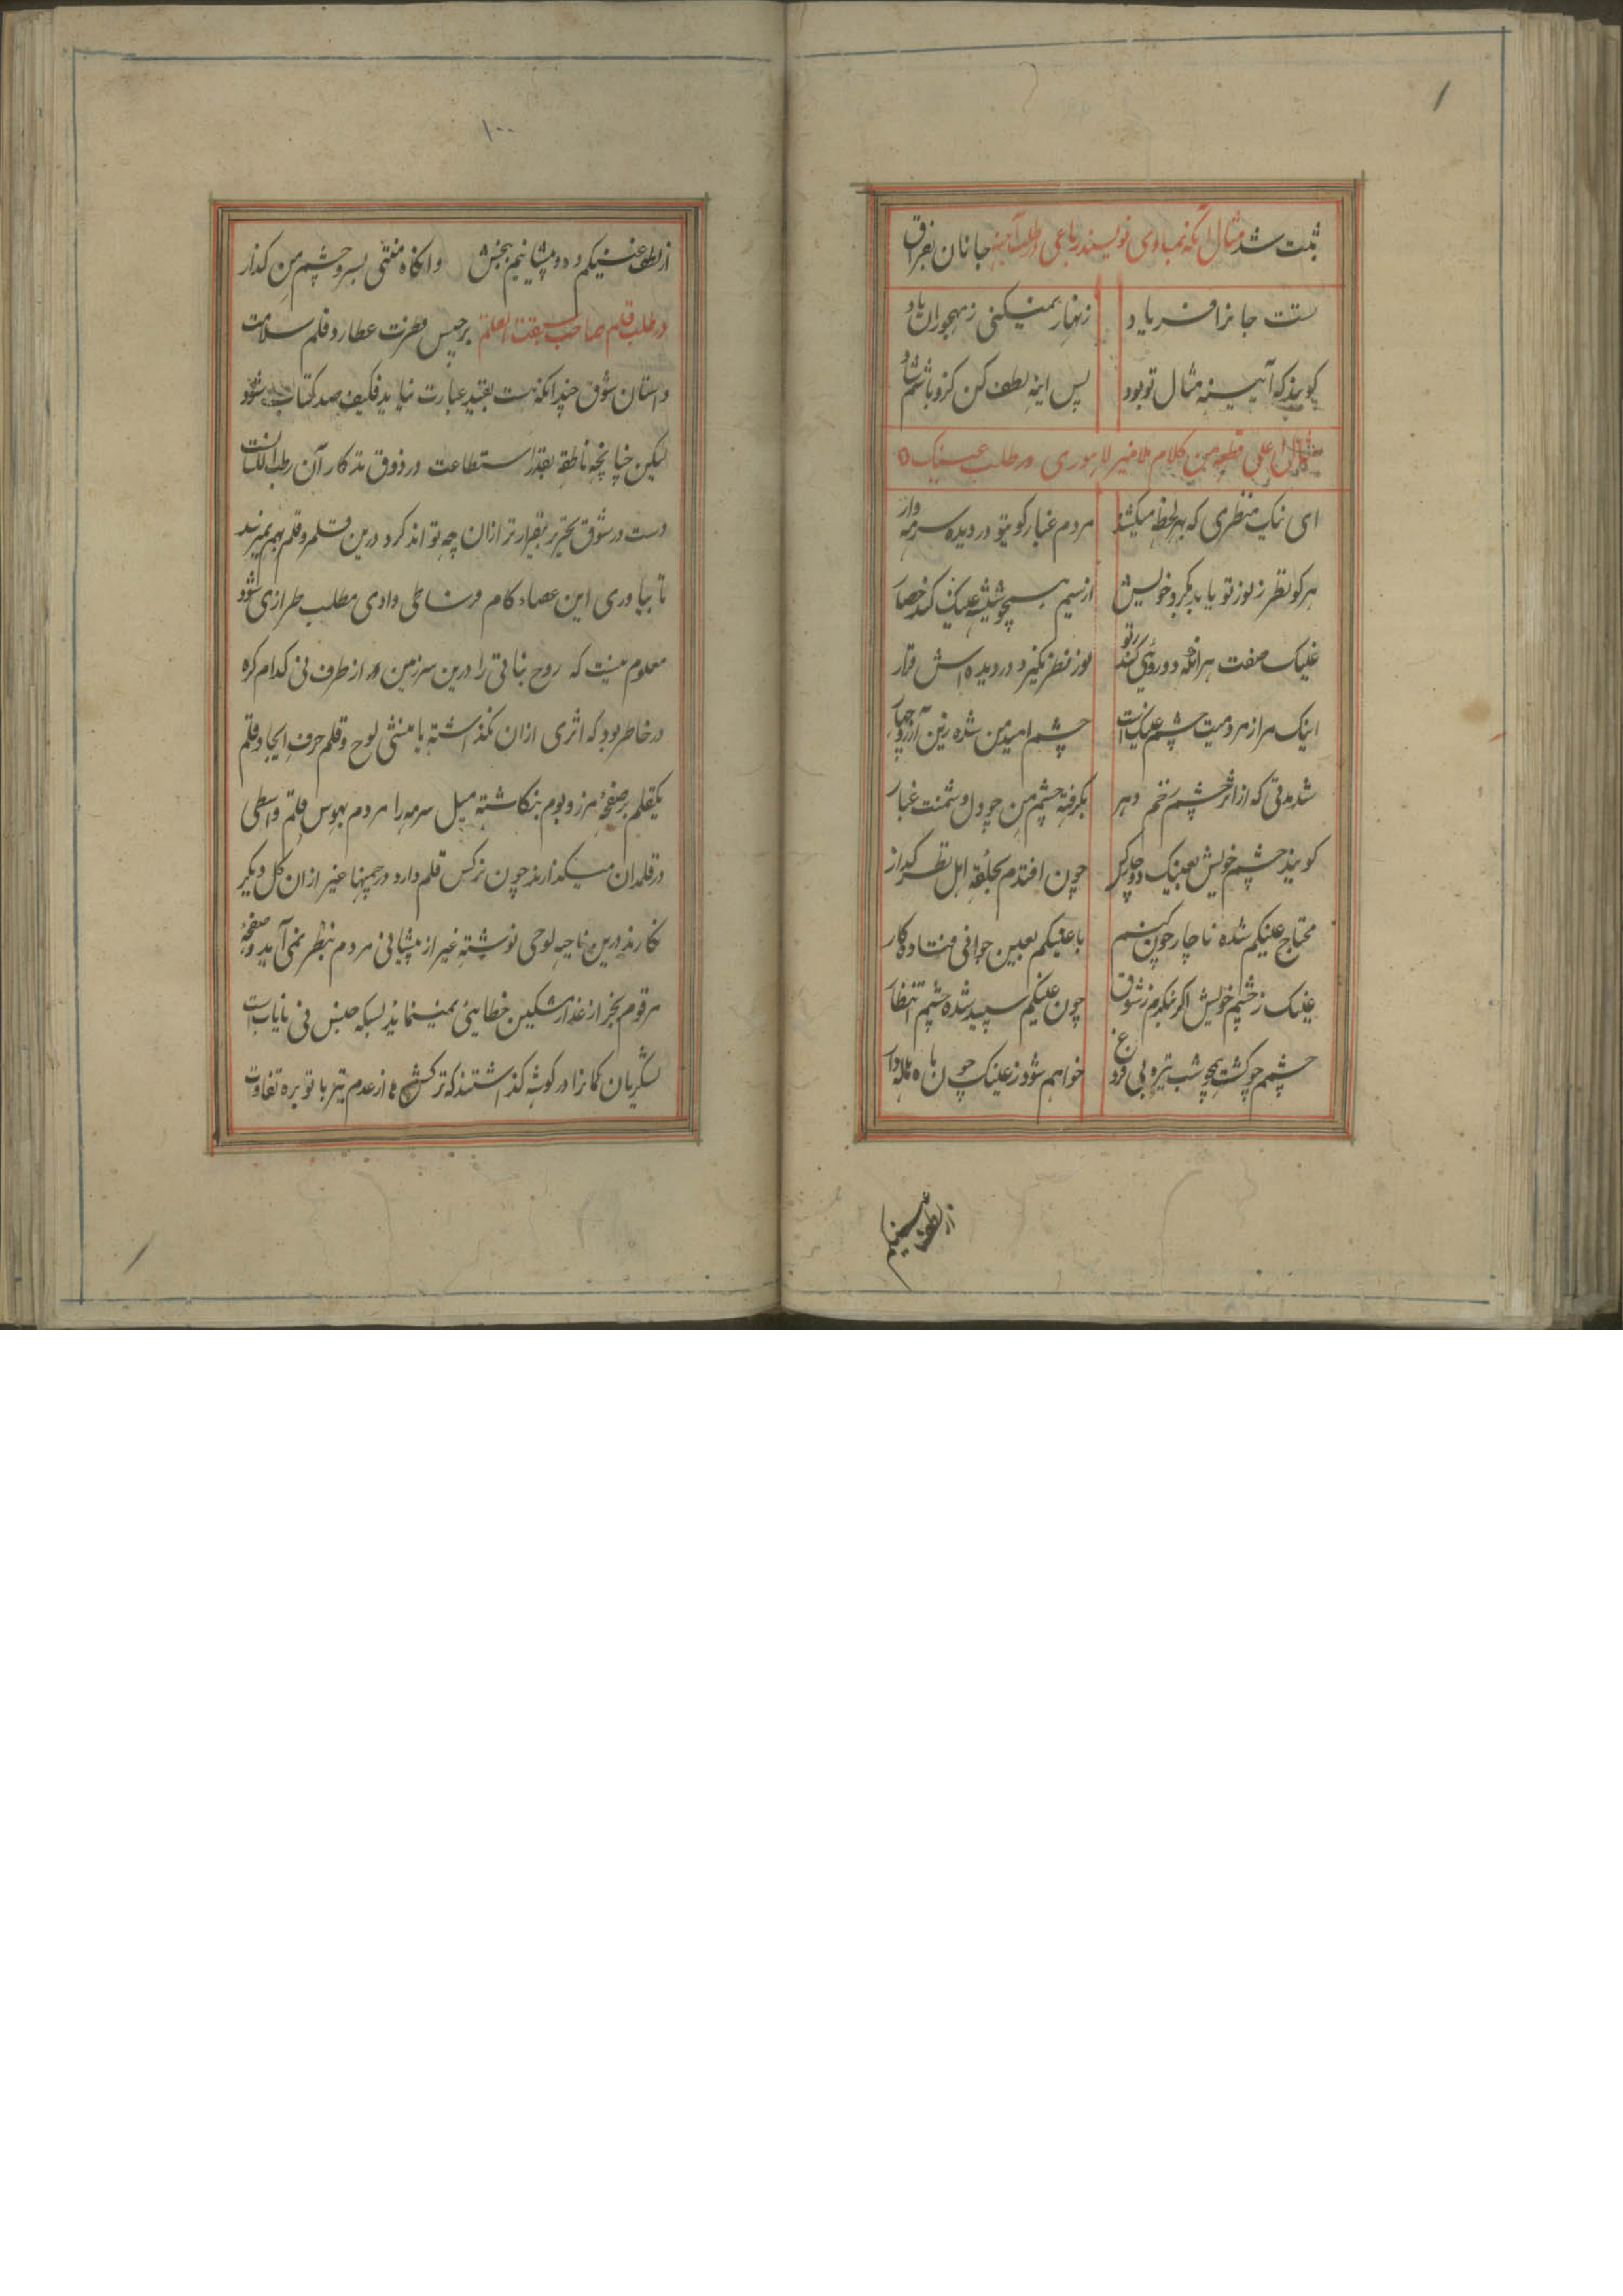 ثبت شد مثال آنکه بمساوی نویسند رباعی در طلب آینه جانان بفراق
تست جانرا فریاد زنهار نمیکنی ز مهجوران یاد
کویند که آیینه مثال تو بود پس اینه لطف کن کزو باشم شاد
مثال اعلی قطعه من کلام ملا منیر لاهوری در طلب عینک
ای نیک منظری که بهر لحظه میکشد مردم غبار کوی تو در دیده سرمه وار
هر کو نظر ز نور تو یابد بکرد خویش از سیم همچو شیشه عینک کند حصار
عینک صفت هر آنکه دورویی کند بتو نور نظر نکیرد در دیده اش قرار
اینک مرا ز مردمیت چشم عینک است چشم امید من شده زین آرزو چهار
شد مدتی که از اثر چشم زخم دهر بکرفته چشم من چو دل دشمنت غبار
کویند چشم خویش بعینک دوچار کن چون افتدم بحلقه اهل نظر کذار
محتاج عینکم شده ناچار چون کنم با عینکم بعین جوانی فتاده کار
عینک ز چشم خویش اکر نکیرم ز شوق چون عینکم سپید شده چشم انتظار
چشمم چو کشت همچو شب تیره بی فروغ خواهم شود ز عینک چون ماه هاله دار
از لطف عینکم
۱۰۰
از لطف عینکم ده و پیشانیم ببخش وانکاه منتی بسر و چشم من کذار
در طلب قلم بصاحب سبقت القلم برجیس فطرت عطارد قلم سلامت
داستان شوق چندانکه نیست بقید عبارت نیاید فکیف صد کتاب شود
لیکن چنانچه ناطقه بقدر استطاعت در ذوق تذکار آن رطب اللسانست
دست در شوق تحریر بیقرارتر ازان چه تواند کرد درین قلمرو قلم بهم نمیرسد
تا بیاوری این عصاء کام فرسای وادی مطلب طرازی شود
معلوم نیست که روح نباتی را درین سرزمین از طرف نی کدام کره
در خاطر بود که اثری ازان نکذاشته یا منشی لوح و قلم حرف ایجاد قلم
یکقلم بر صفحه مرز و بوم بنکاشته میل سرمه را مردم بهوس قلم واسطی
در قلمدان میکذارند چون نرکس قلم دارد در چمنها غیر ازان کل دیکر
نکارند درین ناحیه لوحی نوشته غیر از پیشانی مردم بنظر نمی آید و صفحه
مرقوم بجز از عذار مشکین خطا بینی نمینماید بسکه جنس نی نایاب است
لشکریان کمانرا در کوشه کذاشتند که ترکش ما از عدم تیر با توبره تفاوت